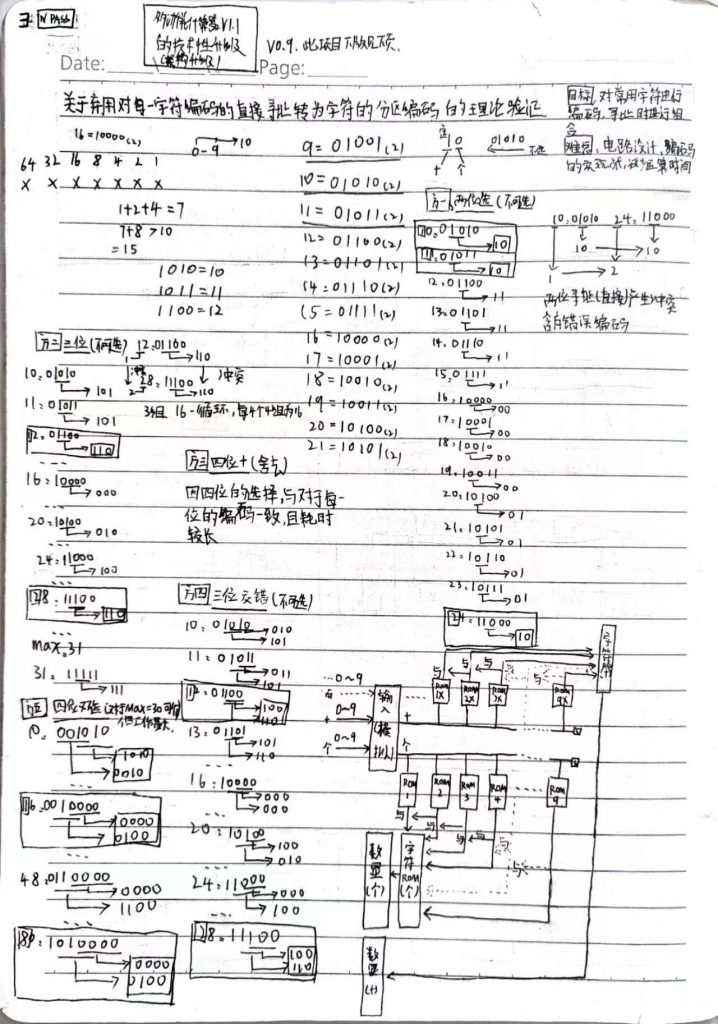 N PASS
的技术性升级
V0.9.
Date:
Page:
关于弃用对每一字符编码的直接寻址转为字符的分区编码的理论验证
目标,对常用字符进行
编码,寻址时进行组
合
16=10000(2)
0-9
10
64 32 16 8 4 2 1
X X X X X X X
1+2+4=7
7+8>10
=15
1010=10
1011=11
1100=12
9=01001(2)
10=01010(2)
11=01011(2)
12=01100(2)
13=01101(2)
14=01110(2)
15=01111(2)
16=10000(2)
17=10001(2)
18=10010(2)
19=10011(2)
20=10100(2)
21=10101(2)
10
十 个
01010
方一、两位选(不可选)
10:01010
10
11:01011
10
12:01100
11
13:01101
11
14:01110
11
15:01111
11
16:10000
00
17:10001
00
18:10010
00
19:10011
00
20:10100
01
21:10101
01
22:10110
01
23:10111
01
24:11000
10
10:01010 24:11000
10 10
1 2
两位寻址(直接)产生冲突
含有错误编码
三位(不可选)
12:01100
110
28:11100
110
冲突
10:01010
101
11:01011
101
12:01100
110
16:10000
000
20:10100
010
24:11000
100
28:11100
110
max:31
31:11111
111
方三 四位+(舍去)
因四位的选择,与对于每一
位的编码一致,且耗时
较长
方四 三位交错(不可选)
10:01010
010
101
11:01011
011
101
12:01100
100
110
13:01101
101
110
16:10000
000
000
20:10100
100
010
24:11000
000
100
28:11100
100
110
四位交错
10:001010
1010
0010
16:0010000
0000
0100
48:0110000
0000
1100
1010000
0000
0100
0~9
0~9
0~9
十
个
输入
ROM 1X
ROM 2X
ROM 3X
ROM 9X
与 与 与 与
ROM 1
ROM 2
ROM 3
ROM 4
ROM 9
与 与 与 与 与
字符ROM(个)
数显(个)
数显(十)